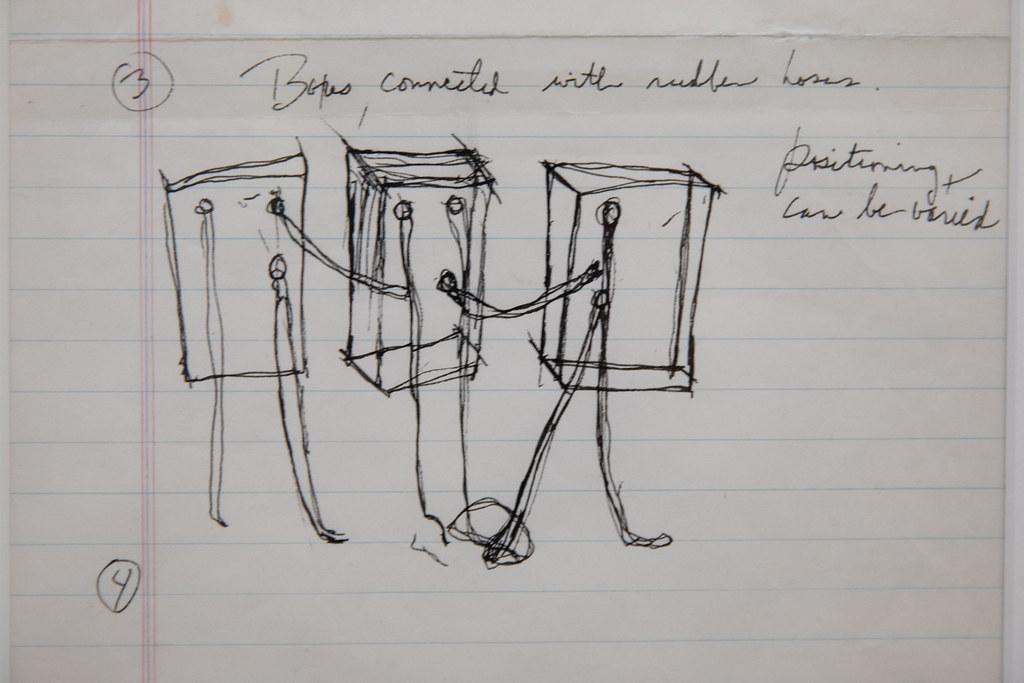 3 Boxes connected with rubber hoses.
positioning
can be varied
4